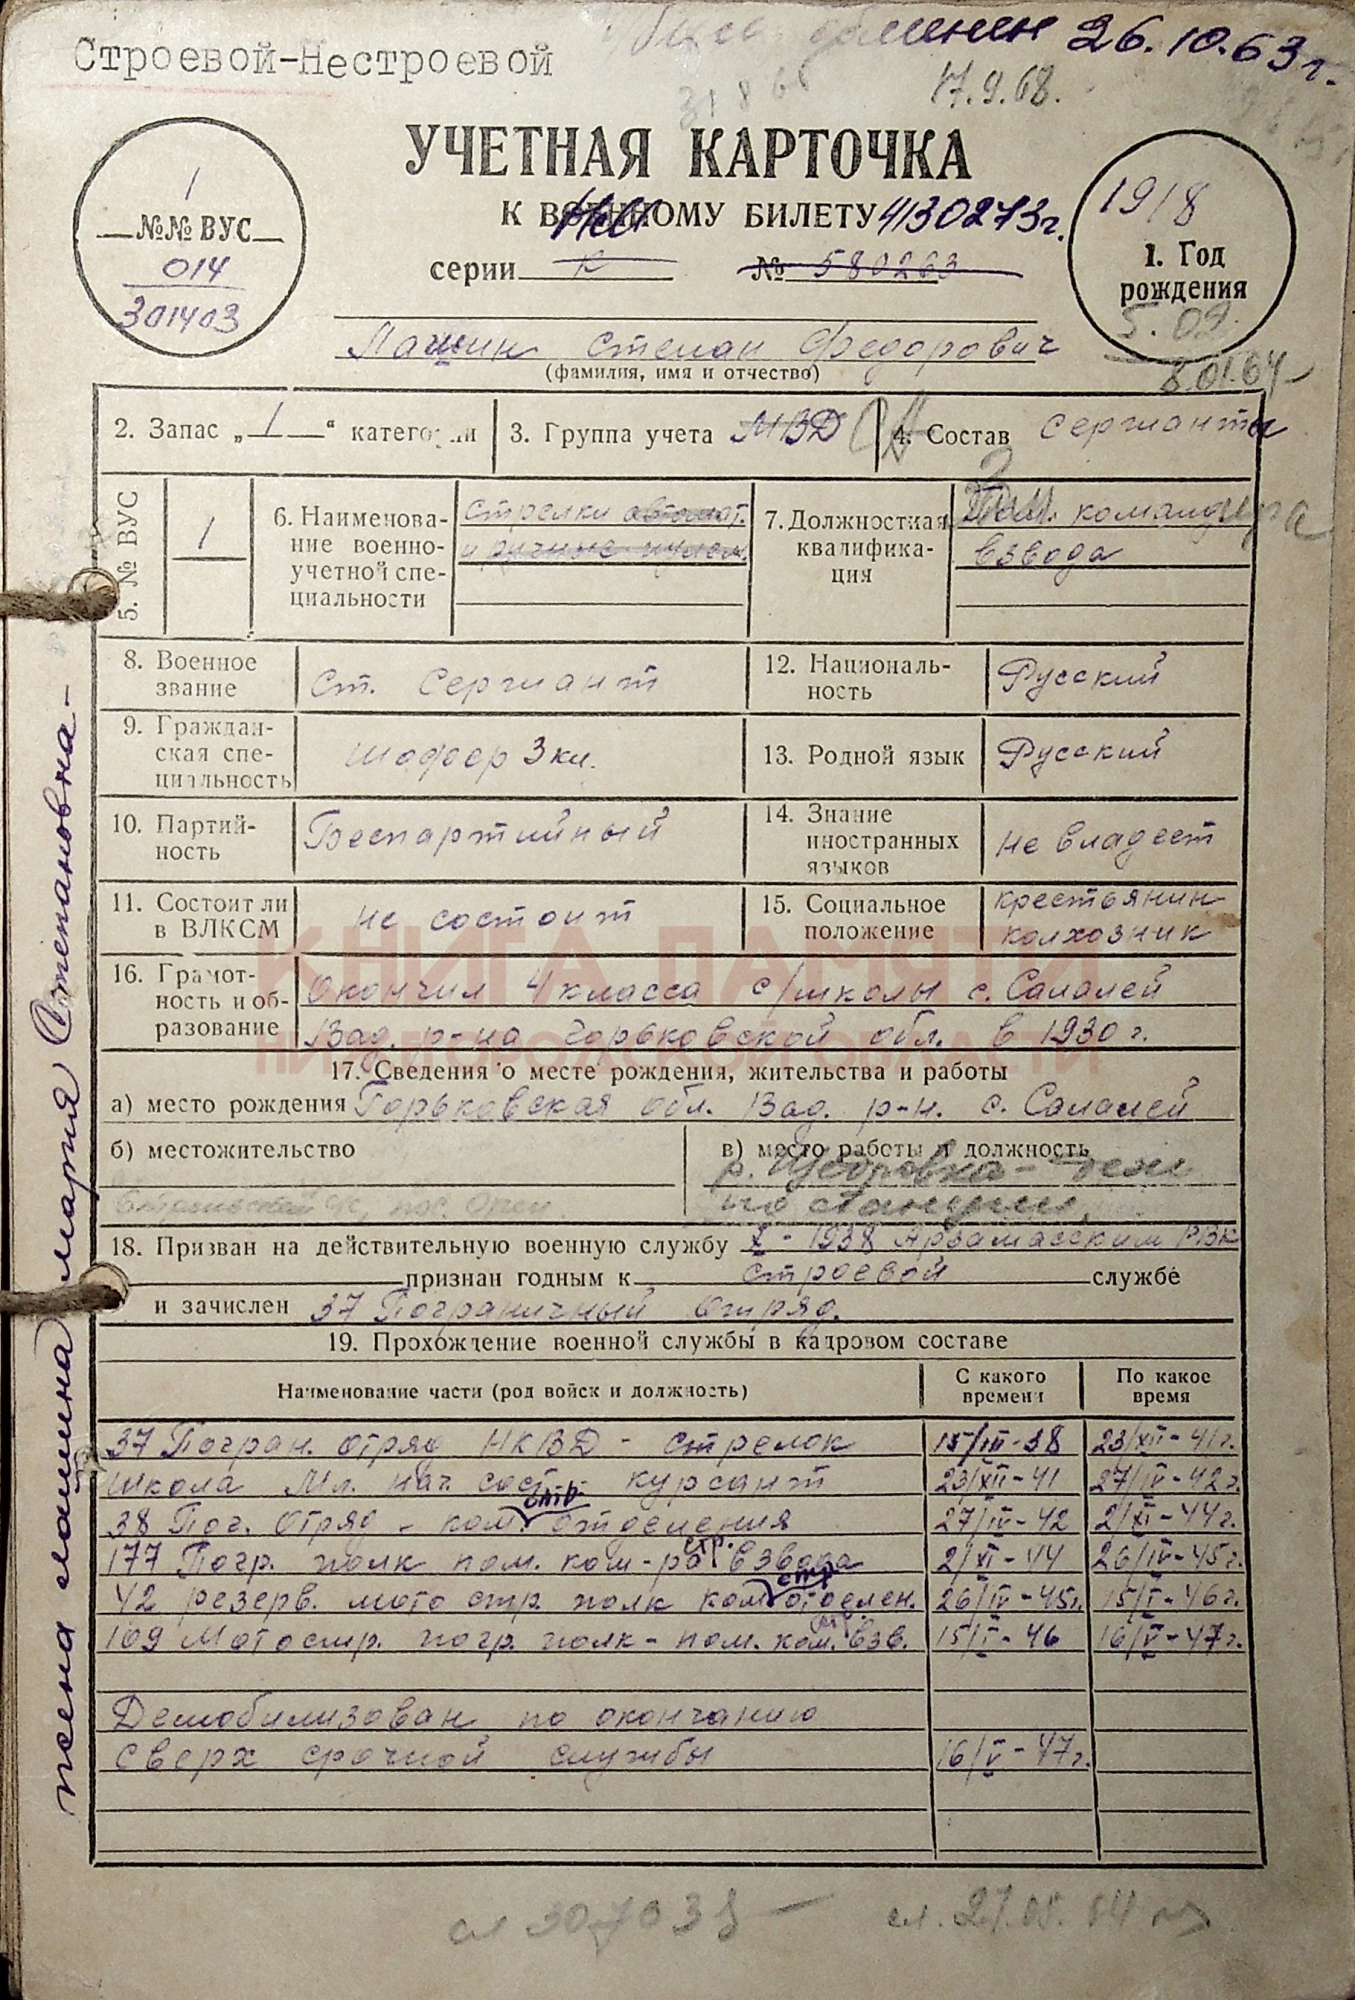 26.10.63 г.
Строевой-Нестроевой
17.9.68.
УЧЕТНАЯ КАРТОЧКА
К ВОЕННОМУ БИЛЕТУ
4130273г.
серии К № 580263
1
№№ ВУС
014
301403
1918
1. Год
рождения
5.02.
8.01.64
Лашин Степан Федорович
(фамилия, имя и отчество)
2. Запас „1“ категории
3. Группа учета МВД СА
4. Состав Сержанты
5. № ВУС
1
6. Наименова-
ние военно-
учетной спе-
циальности
Стрелки автомат.
и ручные пулем.
7. Должностная
квалифика-
ция
Пом. командира
взвода
8. Военное
звание
Ст. Сержант
12. Националь-
ность
Русский
9. Граждан-
ская спе-
циальность
Шофер 3 кл.
13. Родной язык
Русский
10. Партий-
ность
Беспартийный
14. Знание
иностранных
языков
Не владеет
11. Состоит ли
в ВЛКСМ
Не состоит
15. Социальное
положение
Крестьянин
колхозник
16. Грамот-
ность и об-
разование
Окончил 4 класса с/школы с. Салалей
Вад. р-на Горьковской обл. в 1930 г.
17. Сведения о месте рождения, жительства и работы
а) место рождения Горьковская обл. Вад. р-н. с. Салалей
б) местожительство
в) место работы и должность
18. Призван на действительную военную службу X - 1938 Арзамасским РВК
признан годным к строевой службе
и зачислен 37 Пограничный отряд.
19. Прохождение военной службы в кадровом составе
Наименование части (род войск и должность)
С какого
времени
По какое
время
37 Погран. отряд НКВД - стрелок 15/XII-38 23/XII-41г.
Школа Мл. нач. сост. курсант 23/XII-41 27/IV-42г.
38 Пог. Отряд - ком. стр. отделения 27/IV-42 2/XI-44г.
177 Погр. полк пом. ком-ра стр. взвода 2/XI-44 26/IV-45г.
42 резерв. мото стр. полк ком. стр. отделен. 26/IV-45г. 15/I-46г.
109 Мотостр. погр. полк - пом. ком. стр. взв. 15/I-46 16/V-47г.
Демобилизован по окончанию
сверх срочной службы 16/V-47г.
жена Лашина Мария Степановна -
КНИГА ПАМЯТИ
НИЖЕГОРОДСКОЙ ОБЛАСТИ